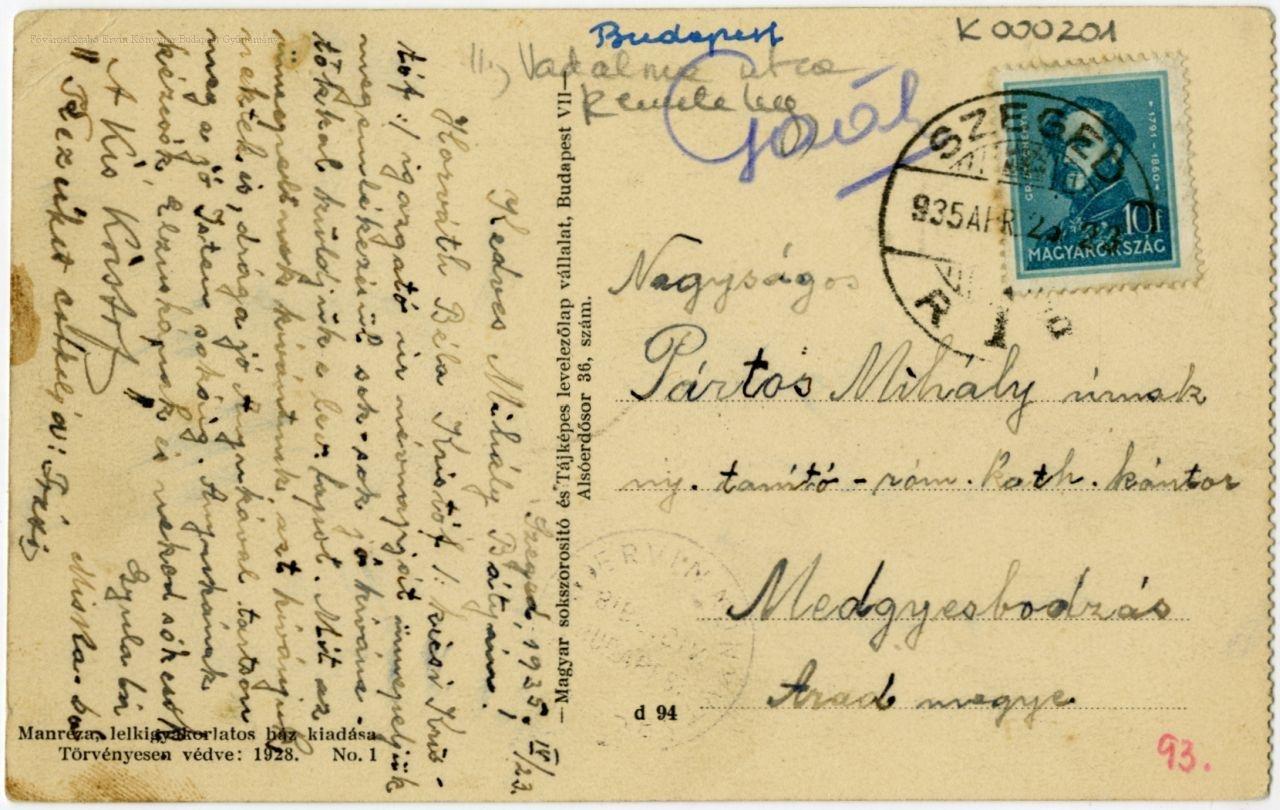 Fővárosi Szabó Ervin Könyvtár Budapest Gyűjtemény
Budapest
K 000201
II., Vadalma utca
Remete hegy
Gaál
SZEGED
935 APR. 23
GR. SZÉCHENYI
1791-1860
10f
MAGYARORSZÁG
Nagyságos
Pártos Mihály úrnak
ny. tanító - róm. kath. kántor
Medgyesbodzás
Arad megye
93.
d 94
—Magyar sokszorosító és Tájképes levelezőlap vállalat, Budapest VII—
Alsóerdősor 36, szám.
Szeged, 1935. IV/23.
Kedves Mihály Bátyám!
Horváth Béla Kristóf /: kicsi Kris-
tóf :/ igazgató úr névnapját ünnepeljük
megemlékezésül sok-sok jó kívána-
tokkal küldjük e lev. lapot. Mit az
ünnepeltnek kívántunk, azt kívánjuk
nektek is, drága jó Anyukával tartson
meg a jó Isten sokáig. Anyukának
kézcsók, Elzuskának és neked sok csók
Gyula bá
A Kis Kristóf
Miska bá
" Kezüket csókolja:
Manréza, lelkigyakorlatos ház kiadása
Törvényesen védve: 1928. No. 1